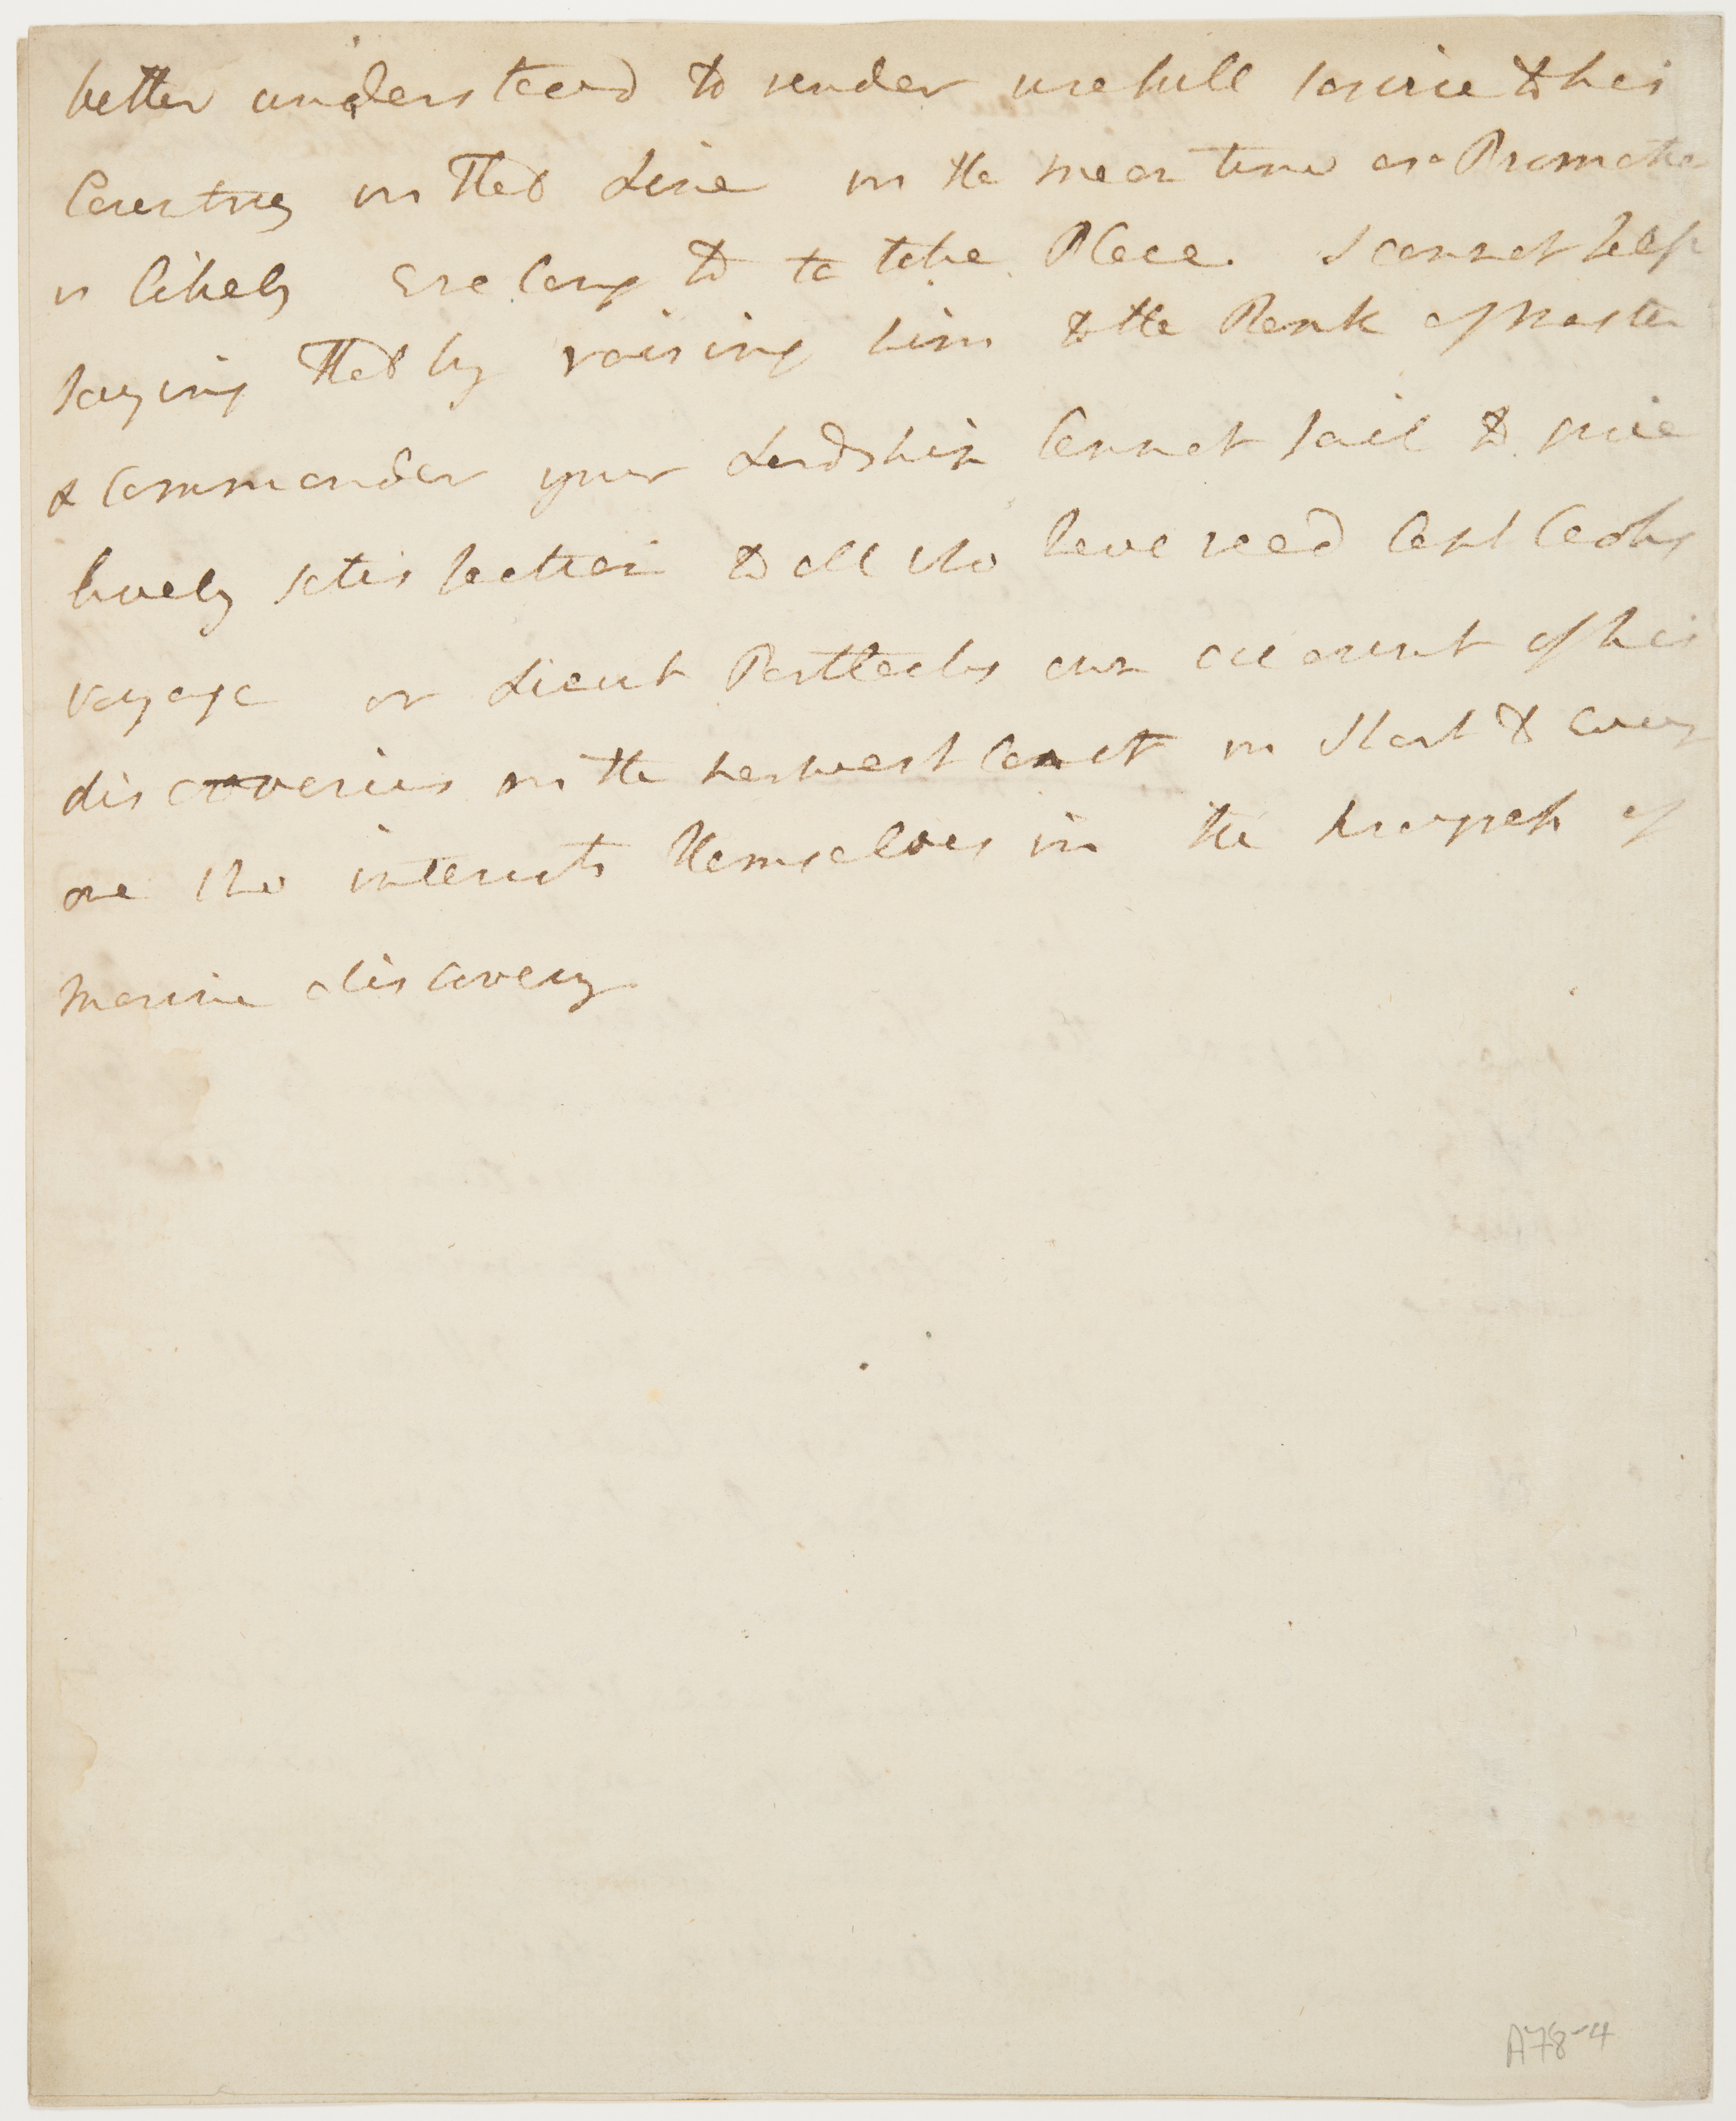 better understood to render usefull service to his
Country in that Line in the mean time as a Promotion
is likely Ere long to to take Place. I cannot help
saying that by raising him to the Rank of master
& Commander your Lordship Cannot fail to give
lively satisfaction to all who have read Capt Cooks
voyage or Lieut Portlocks own account of his
discoveries on the norwest Coast in Short to every
one who interests themselves in the progress of
marine discovery
A78-4